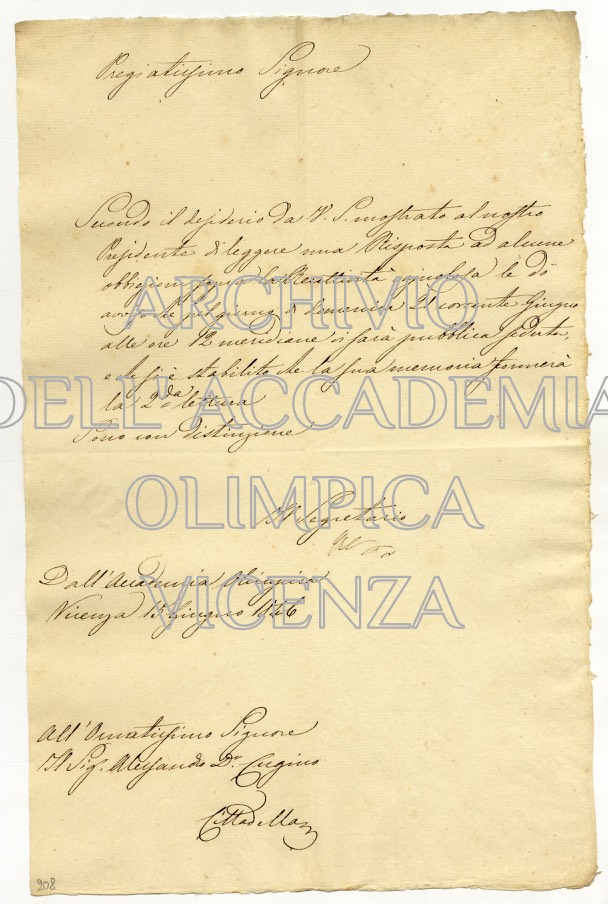 Pregiatissimo Signore
Secondo il desiderio da V. S. mostrato al nostro
Presidente di leggere una Risposta ad alcune
obbiezioni sopra la Recettività vincolata le dò
avviso che pel giorno di domenica 21 corrente Giugno
alle ore 12 meridiane si farà pubblica seduta,
e che si è stabilito che la sua memoria formerà
la 2da lettura
Sono con distinzione
Il Segretario
Dall'Accademia Olimpica
Vicenza 15 Giugno 1846
All'Ornatissimo Signore
Il Sigr. Alessandro Dr. Cugino
Cittadella
208
ARCHIVIO
DELL'ACCADEMIA
OLIMPICA
VICENZA